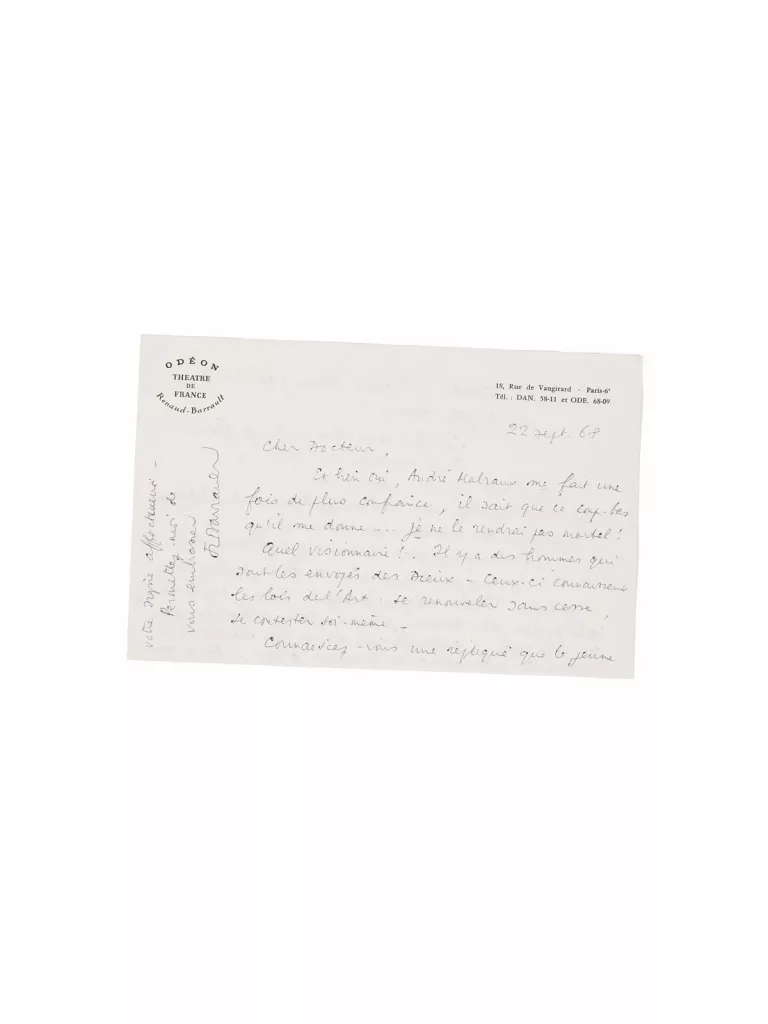 ODÉON
THEATRE
DE
FRANCE
Renaud-Barrault
18, Rue de Vaugirard - Paris-6e
Tél. : DAN. 58-11 et ODE. 68-09
22 sept. 68
Cher Docteur,
Et bien oui, André Malraux me fait une
fois de plus confiance, il sait que ce coup-bas
qu'il me donne --- je ne le rendrai pas mortel !
Quel visionnaire !.. Il y a des hommes qui
sont les envoyés des Dieux - Ceux-ci connaissent
les lois de l'Art : se renouveler sans cesse,
se contester soi-même -
Connaissez-vous une réplique que le jeune
votre affectueuse -
Permettez-moi de
vous embrasser
JLBarrault